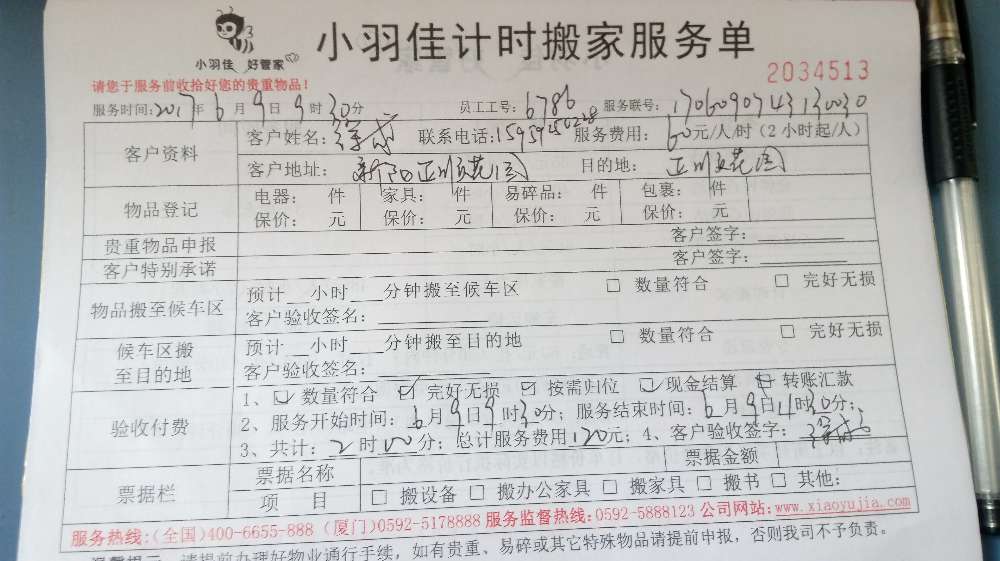 小羽佳 好管家
小羽佳计时搬家服务单
请您于服务前收拾好您的贵重物品！
2034513
服务时间：2017年6月9日9时30分 员工工号：6786 服务联号：
客户资料
客户姓名： 联系电话： 服务费用：60元/人/时（2小时起/人）
客户地址：新阳正顺花园 目的地：正顺花园
物品登记
电器： 件 家具： 件 易碎品： 件 包裹： 件
保价： 元 保价： 元 保价： 元 保价： 元
贵重物品申报 客户签字：
客户特别承诺 客户签字：
物品搬至候车区
预计__小时___分钟搬至候车区 □ 数量符合 □ 完好无损
客户验收签名：
候车区搬至目的地
预计__小时___分钟搬至目的地 □ 数量符合 □ 完好无损
客户验收签名：
验收付费
1、☑ 数量符合 ☑ 完好无损 ☑ 按需归位 ☑ 现金结算 ☑ 转账汇款
2、服务开始时间：6月9日9时30分；服务结束时间：6月9日11时30分；
3、共计：2时00分；总计服务费用120元；4、客户验收签字：
票据栏
票据名称 票据金额
项 目 □ 搬设备 □ 搬办公家具 □ 搬家具 □ 搬书 □ 其他：
服务热线：(全国)400-6655-888 (厦门)0592-5178888 服务监督热线：0592-5888123 公司网站：www.xiaoyujia.com
温馨提示 请提前办理好物业通行手续，如有贵重、易碎或其它特殊物品请提前申报，否则我司不予负责。